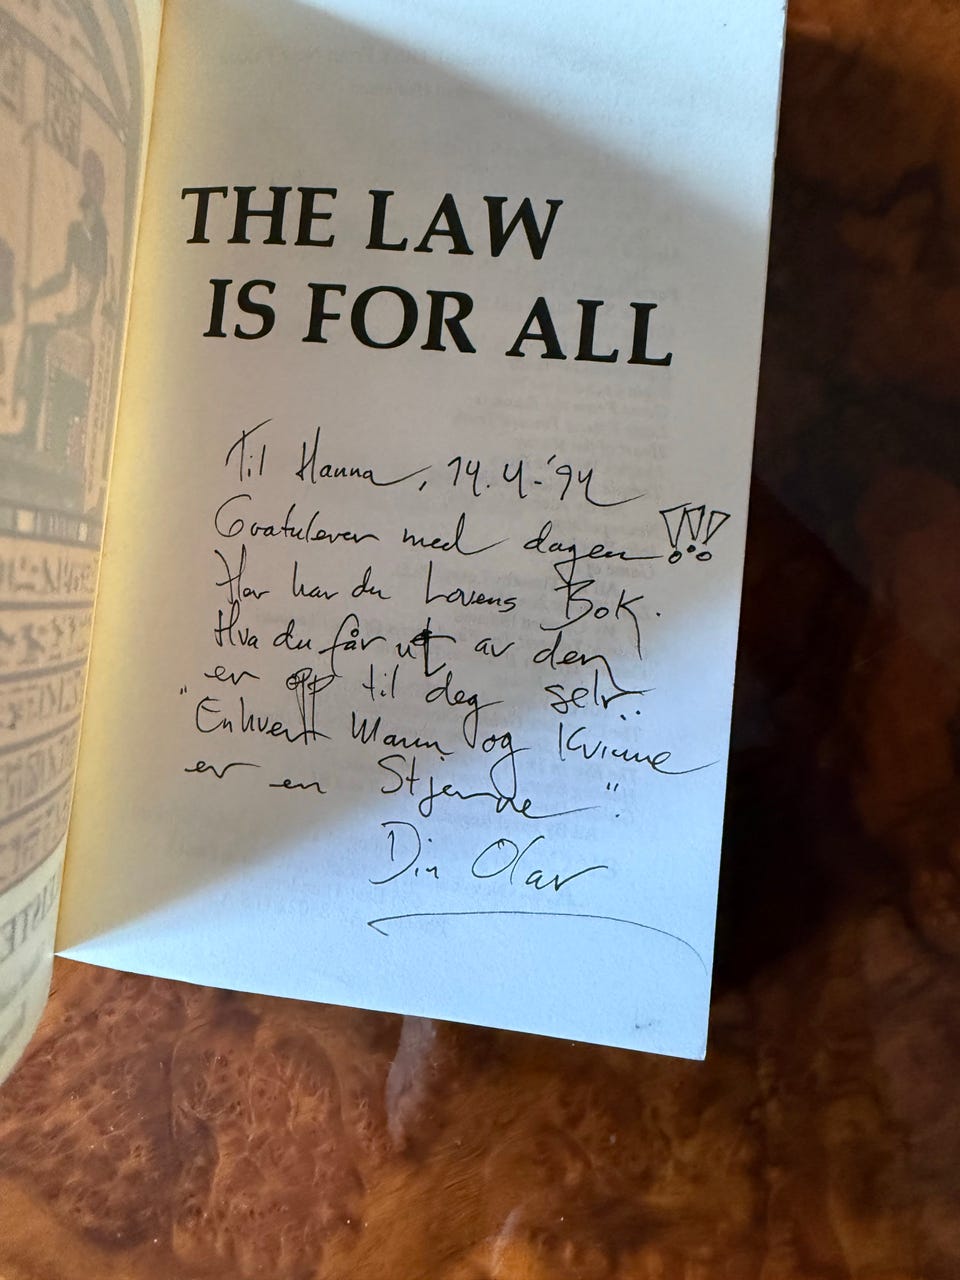 THE LAW
IS FOR ALL
Til Hanna, 14.4-'94
Gratulerer med dagen!!!
Her har du Lovens Bok.
Hva du får ut av den
er opp til deg selv..
"Enhver Mann og Kvinne
er en Stjerne".
Din Olav